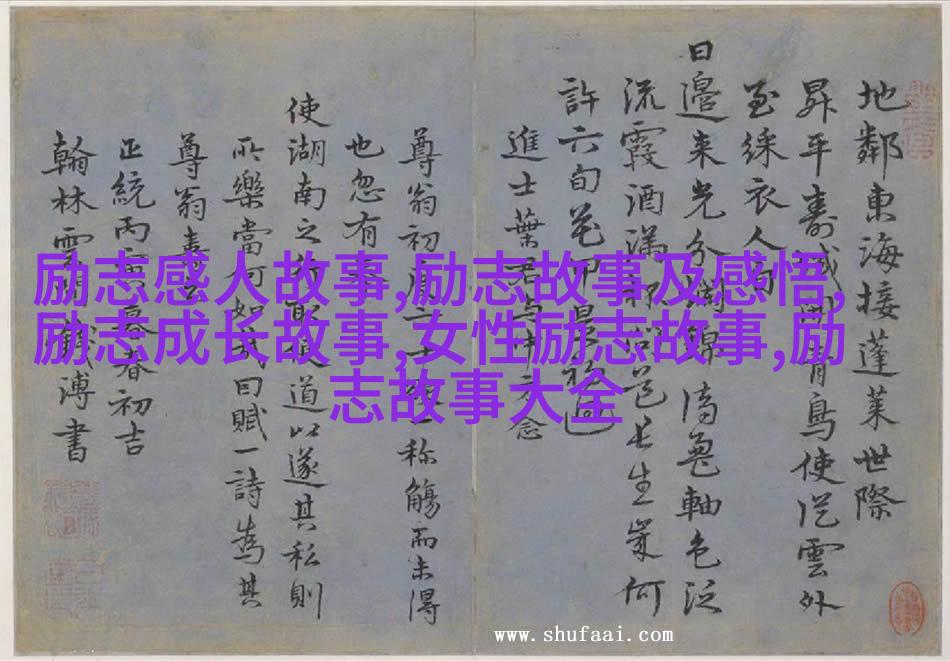 地鄰東海接蓬萊世際
昇平壽域開青鳥使從雲外
至綵衣人向
日邊来光分軸色泛
流霞酒滿長生嵗何
許六旬花甲過
進士葉君念
尊翁初稱觴而未得
也忽有
使湖南之行取便道以遂其私則
所樂當何如哉因賦一詩為其
尊翁壽
正統丙寅暮春初吉
翰林雲間錢溥書
励志感人故事,励志故事及感悟,
励志成长故事,女性励志故事,励
志故事大全
www.shufaai.com